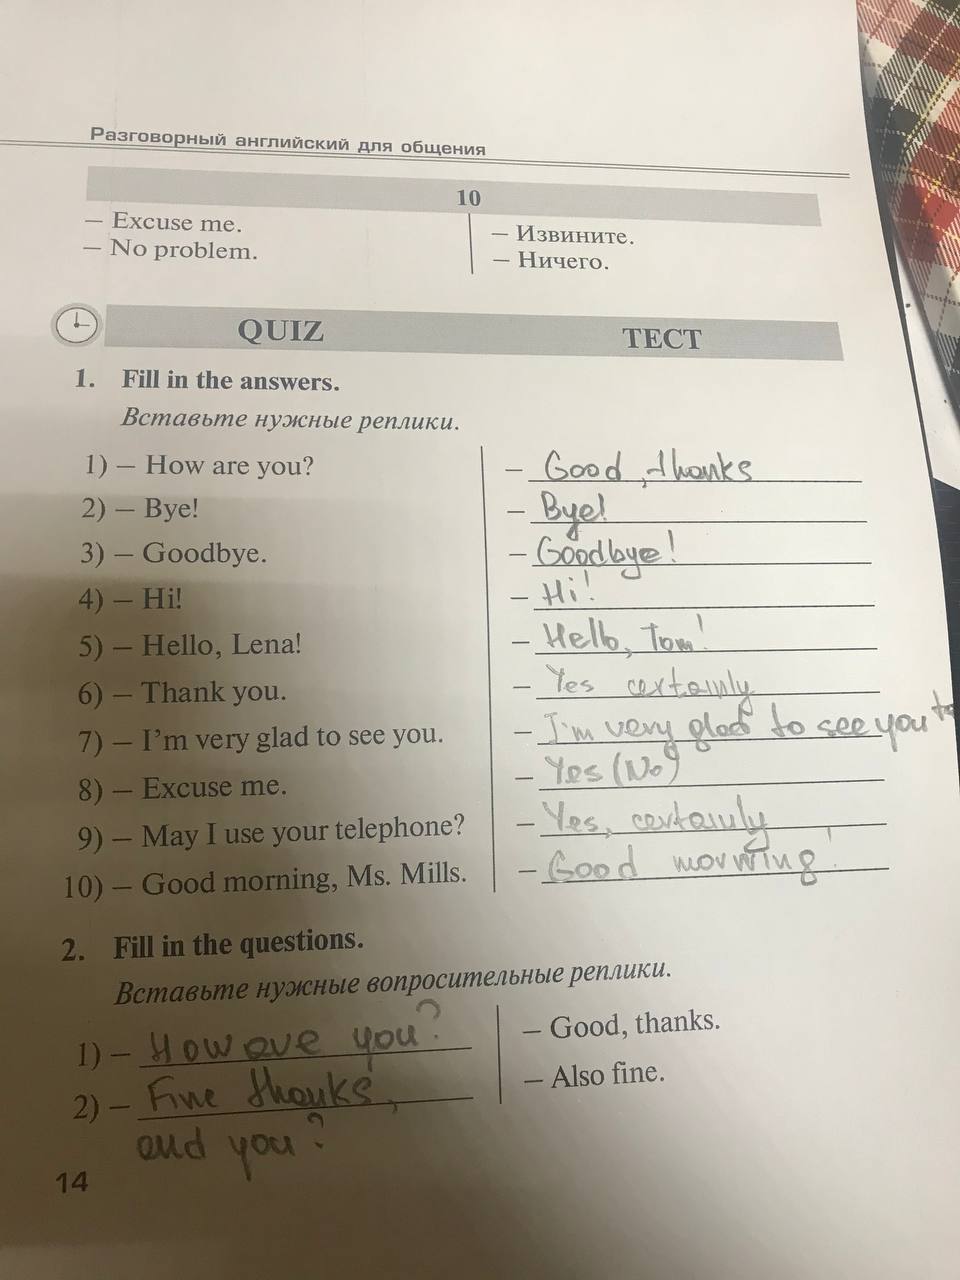 Разговорный английский для общения
10
– Excuse me.
– Извините.
– No problem.
– Ничего.
QUIZ
ТЕСТ
1. Fill in the answers.
Вставьте нужные реплики.
1) – How are you?
– Good, thanks
2) – Bye!
– Bye!
3) – Goodbye.
– Goodbye!
4) – Hi!
– Hi!
5) – Hello, Lena!
– Hello, Tom!
6) – Thank you.
– Yes certainly
7) – I'm very glad to see you.
– I'm very glad to see you to
8) – Excuse me.
– Yes (No)
9) – May I use your telephone?
– Yes, certainly
10) – Good morning, Ms. Mills.
– Good morning!
2. Fill in the questions.
Вставьте нужные вопросительные реплики.
1) – How are you?
– Good, thanks.
2) – Fine thanks,
– Also fine.
and you?
14